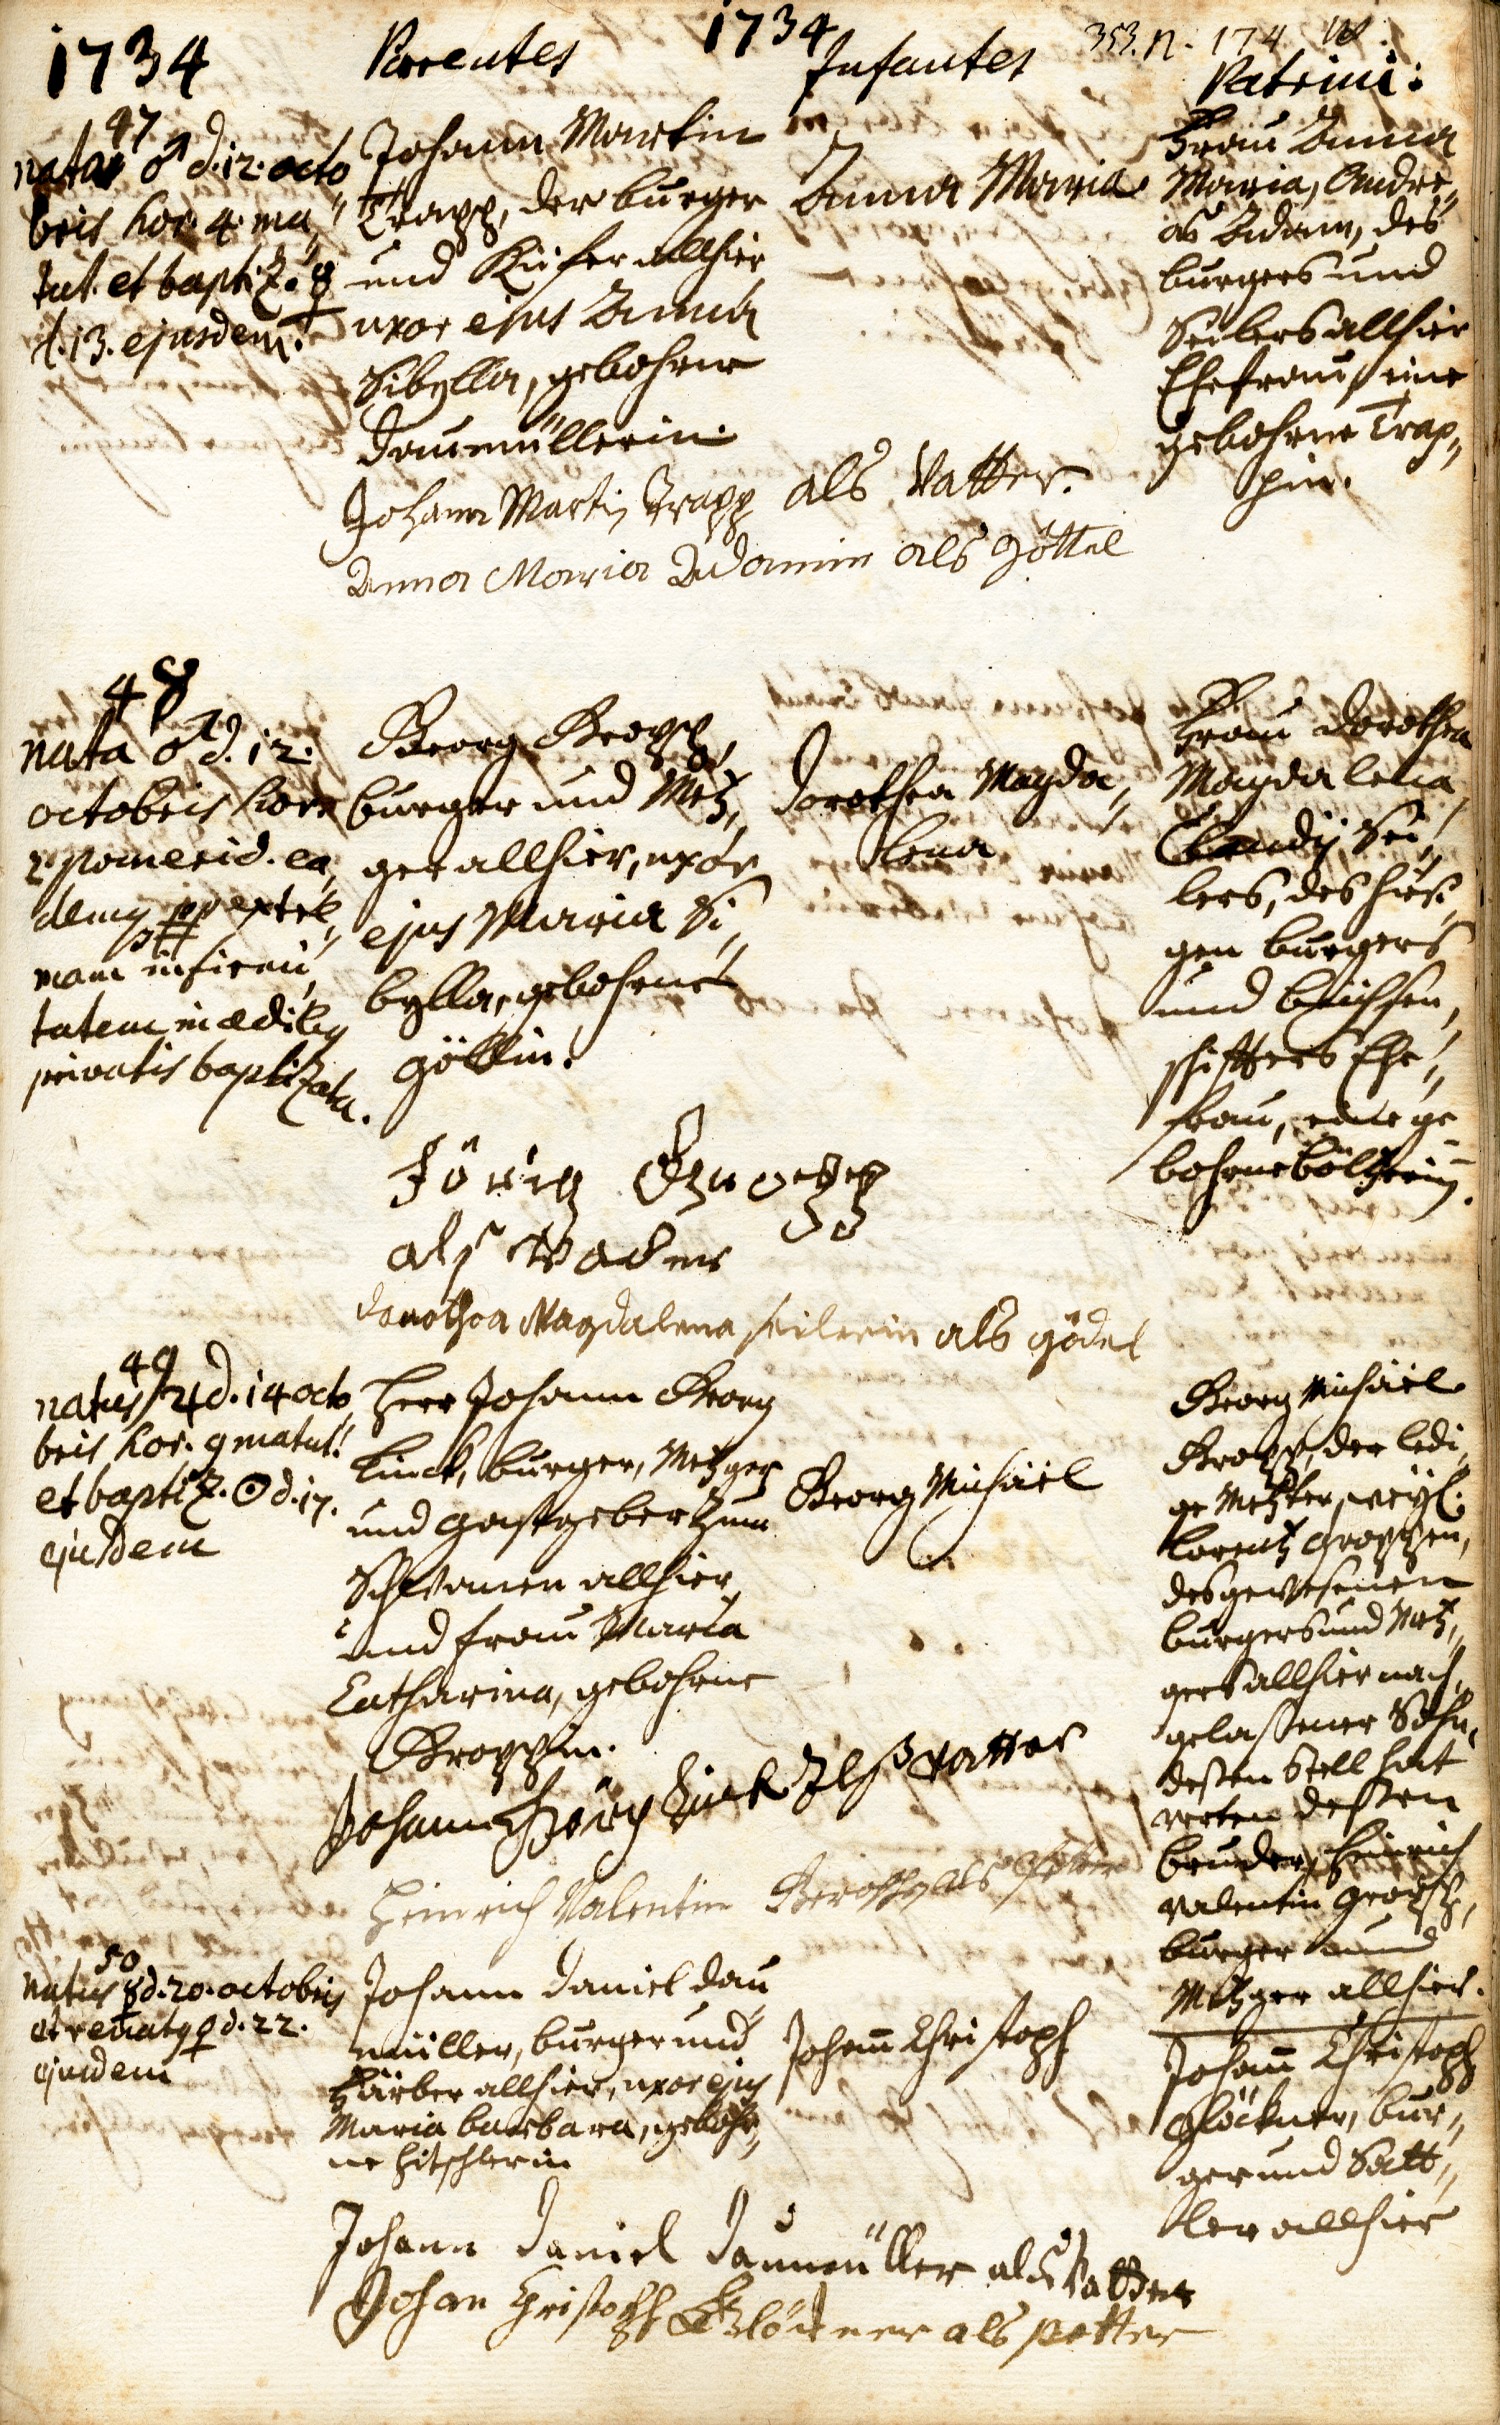 1734
1734
353. n. 174
Parentes
Infantes
Patrini:
47
nata ♂ d. 12. octo
bris hor. 4. ma„
tut. et baptiz. ☿
d. 13. ejusdem.
Johann Martin
Trapp, der burger
und Küfer allhier
uxor ejus Anna
Sibylla, gebohrne
Daumüllerin.
Anna Maria
Frau Anna
Maria, Andre„
as Adam, des
burgers und
Seilers allhier
Ehefrau, eine
gebohrne Trap„
pin.
Johann Martin Trapp als Vatter.
Anna Maria Adamin als Göttel
48
nata ♂ d. 12.
octobris hora
2 pomerid. ea„
demq pp extre„
mam infirmi„
tatem in ædibq
privatis baptizata.
Georg Gropp,
burger und Metz„
ger allhier, uxor
ejus Maria Si„
bylla, gebohrne
Göllin.
Dorothea Magda„
lena
Frau Dorothea
Magdalena
Claudij Sei„
lers, des hiesi„
gen burgers
und büchsen„
schiffters Ehe„
frau, eine ge
bohrne
Jörig
als Vader
Dorothea Magdalena seilerin als gödel
49
natus ♃ d. 14 octo
bris hor. 9 matut.
et baptiz. ☉ d. 17.
ejusdem
Herr Johann Georg
Linck, burger, Metzger
und gastgeber zum
Schwanen allhier,
und frau Maria
Catharina, gebohrne
Groppin.
Georg Michäel
Georg Michäel
Gropp, der ledi„
ge Metzger, weyl.
Lorentz Groppen,
des gewesenen
burgers und Metz„
gers allhier nach„
gelaßener Sohn,
deßen Stell hat
verten deßen
bruder, Heinrich
Valentin Gropp,
burger und
Metzger allhier.
Johann Görg Linck Alß vatter
Heinrich Valentin Gropp als
50
natus ☿ d. 20. octobris
et renatq ♀ d. 22.
ejusdem
Johann Daniel Dau„
müller, burger und
Färber allhier, uxor ejus
Maria barbara, gebohr„
ne Hitschlerin
Johann Christoph
Johann Christoph
Glöckner, bur„
ger und Satt„
ler allhier
Johann Daniel Daumüller als Vatter
Johan Christoph Glöckner als petter